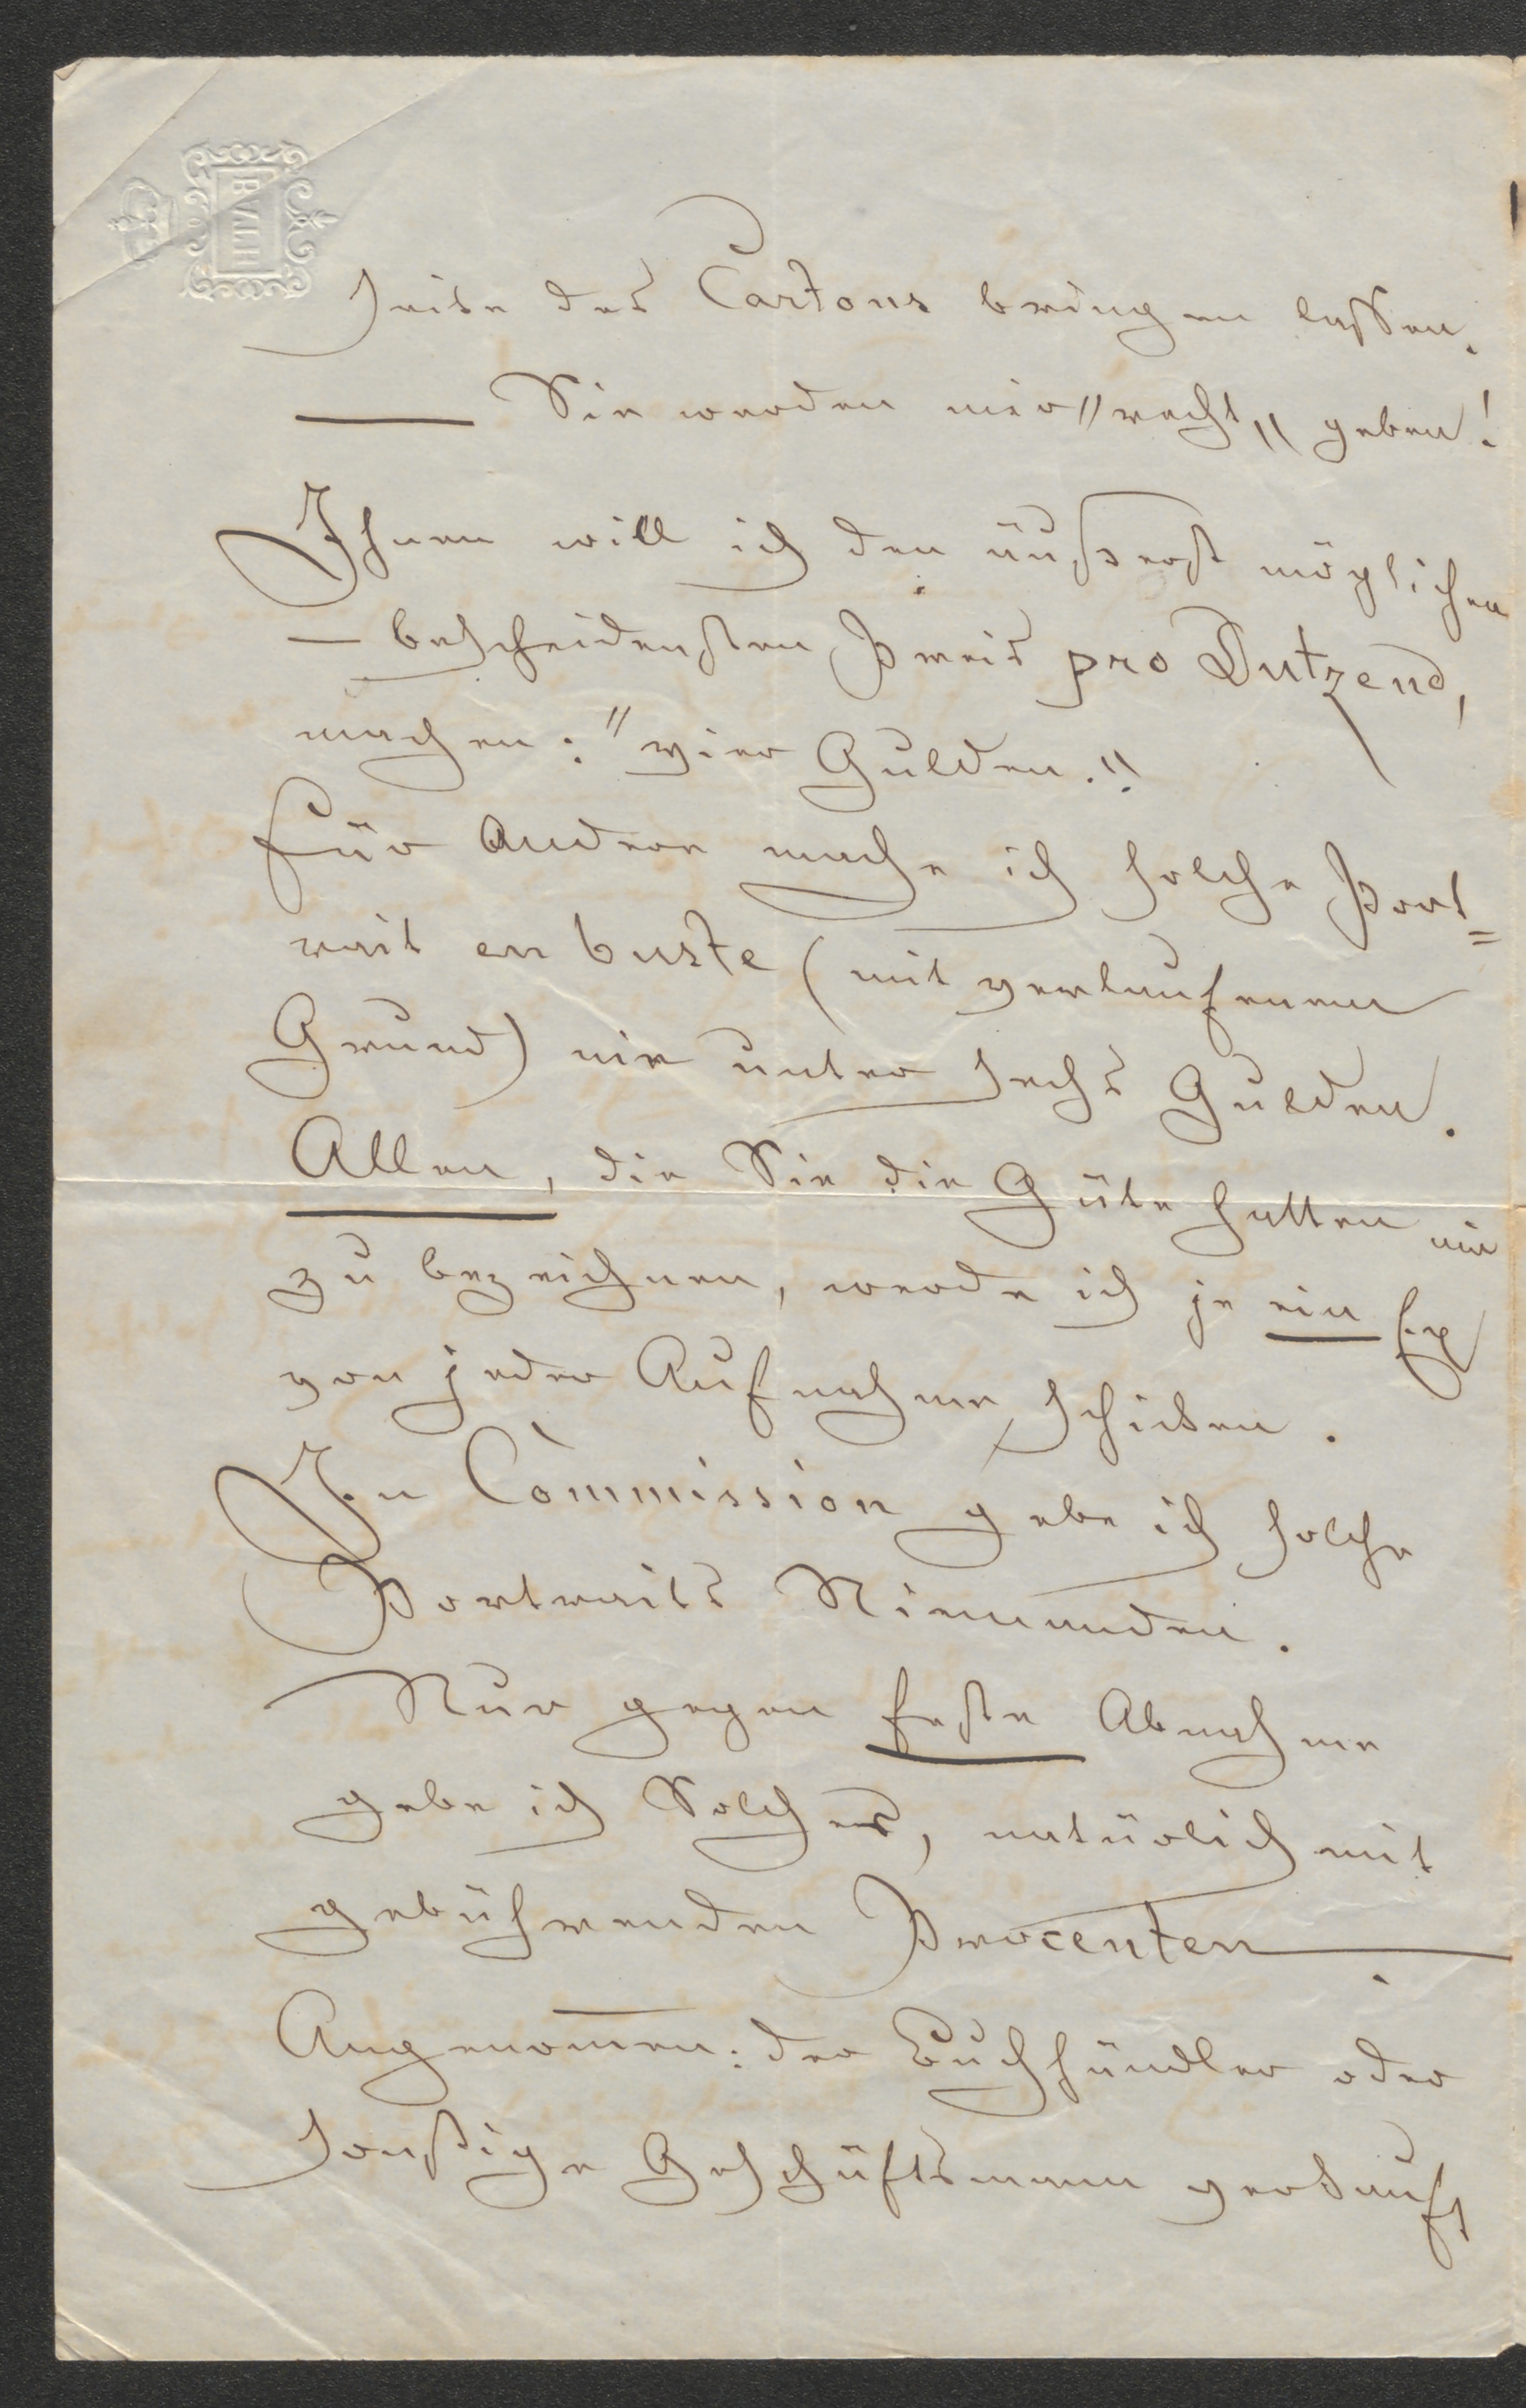 BATH
Seite des Cartons bringen lassen.
— Sie werden mir "recht" geben!
Ihnen will ich den äußerst möglichen
— bescheidensten Preis pro Dutzend,
machen: "vier Gulden."
Für Andere mache ich solche Port=
rait en buste (mit verlaufenem
Grund) nie unter sechs Gulden.
Allen, die Sie die Güte hatten mir
zu bezeichnen, werde ich je ein Ex
von jeder Aufnahme schicken.
In Commission gebe ich solche
Portraits Niemanden.
Nur gegen feste Abnahme
gebe ich Solches, natürlich mit
gebührenden Procenten —
Angenom̅en: der Buchhändler oder
sonstige Geschäftsmann verkauft